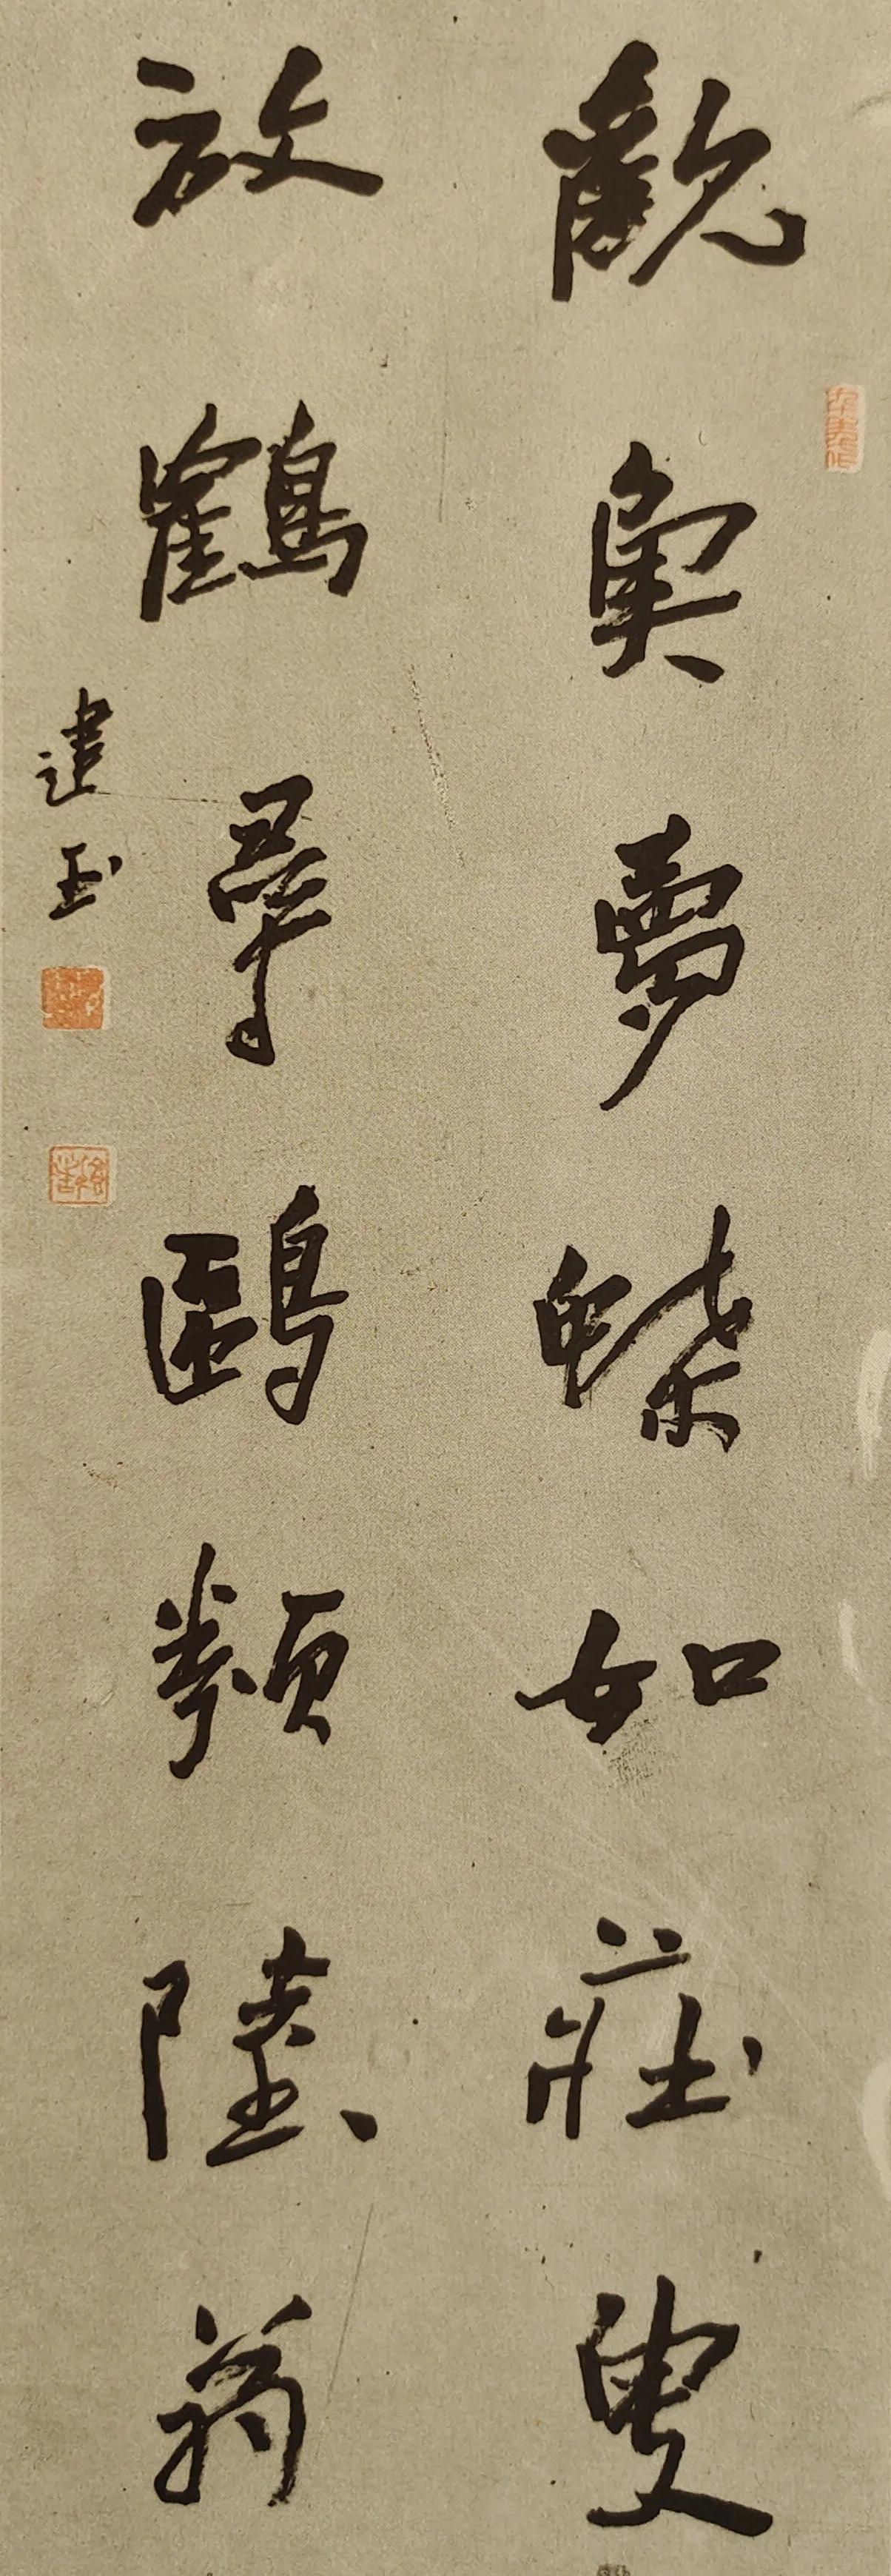 觀魚夢蝶如莊叟
放鶴尋鷗類陸翁
建玉